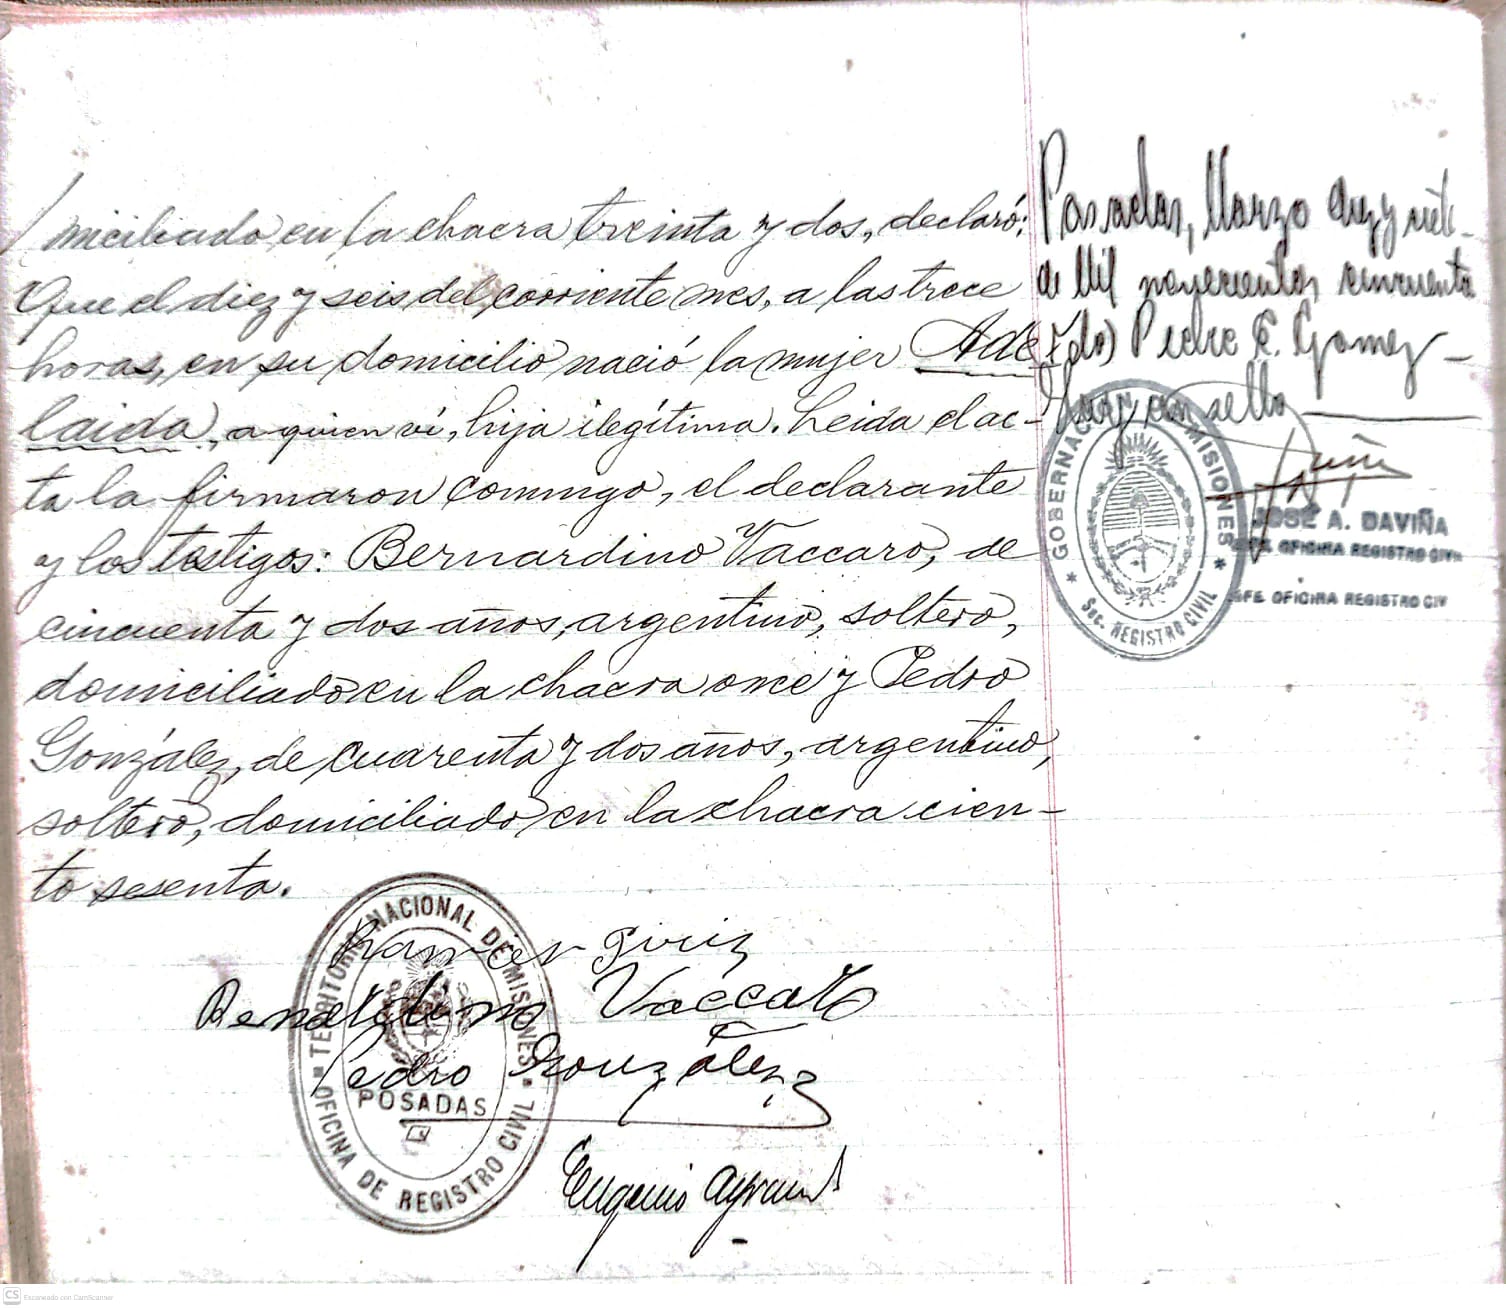 /miciliado en la chacra treinta y dos, declaró:
Que el diez y seis del corriente mes, a las trece
horas, en su domicilio nació la mujer Ade
laida, a quien ví, hija ilegítima. Leida el ac-
ta la firmaron conmigo, el declarante
y los testigos: Bernardino Vaccaro, de
cincuenta y dos años, argentino, soltero,
domiciliado en la chacra once y Pedro
González, de cuarenta y dos años, argentino,
soltero, domiciliado en la chacra cien-
to sesenta.
Vaccaro
Pedro González
Eugenio
TERRITORIO NACIONAL DE MISIONES
POSADAS
OFICINA DE REGISTRO CIVIL
Posadas, Marzo diez y siete
de Mil novecientos cincuenta
Fdo) Pedro E. Gomez
Hay un sello
GOBERNACION MISIONES
Sec. REGISTRO CIVIL
JOSÉ A. DAVIÑA
JEFE OFICINA REGISTRO CIVIL
JEFE OFICINA REGISTRO CIV
CS Escaneado con CamScanner